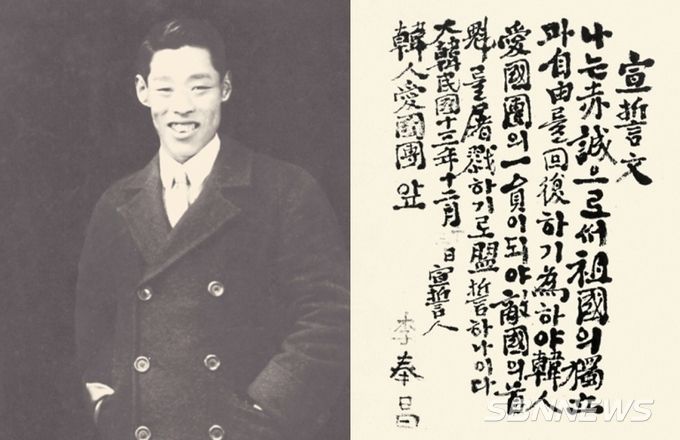 宣誓文
나는赤誠으로써祖國의獨立
과自由를回復하기爲하야韓人
愛國團의一員이되야敵國의首
魁를屠戮하기로盟誓하나이다
大韓民國十三年十二月 日 宣誓人
李奉昌
韓人愛國團 앞
SBNNEWS